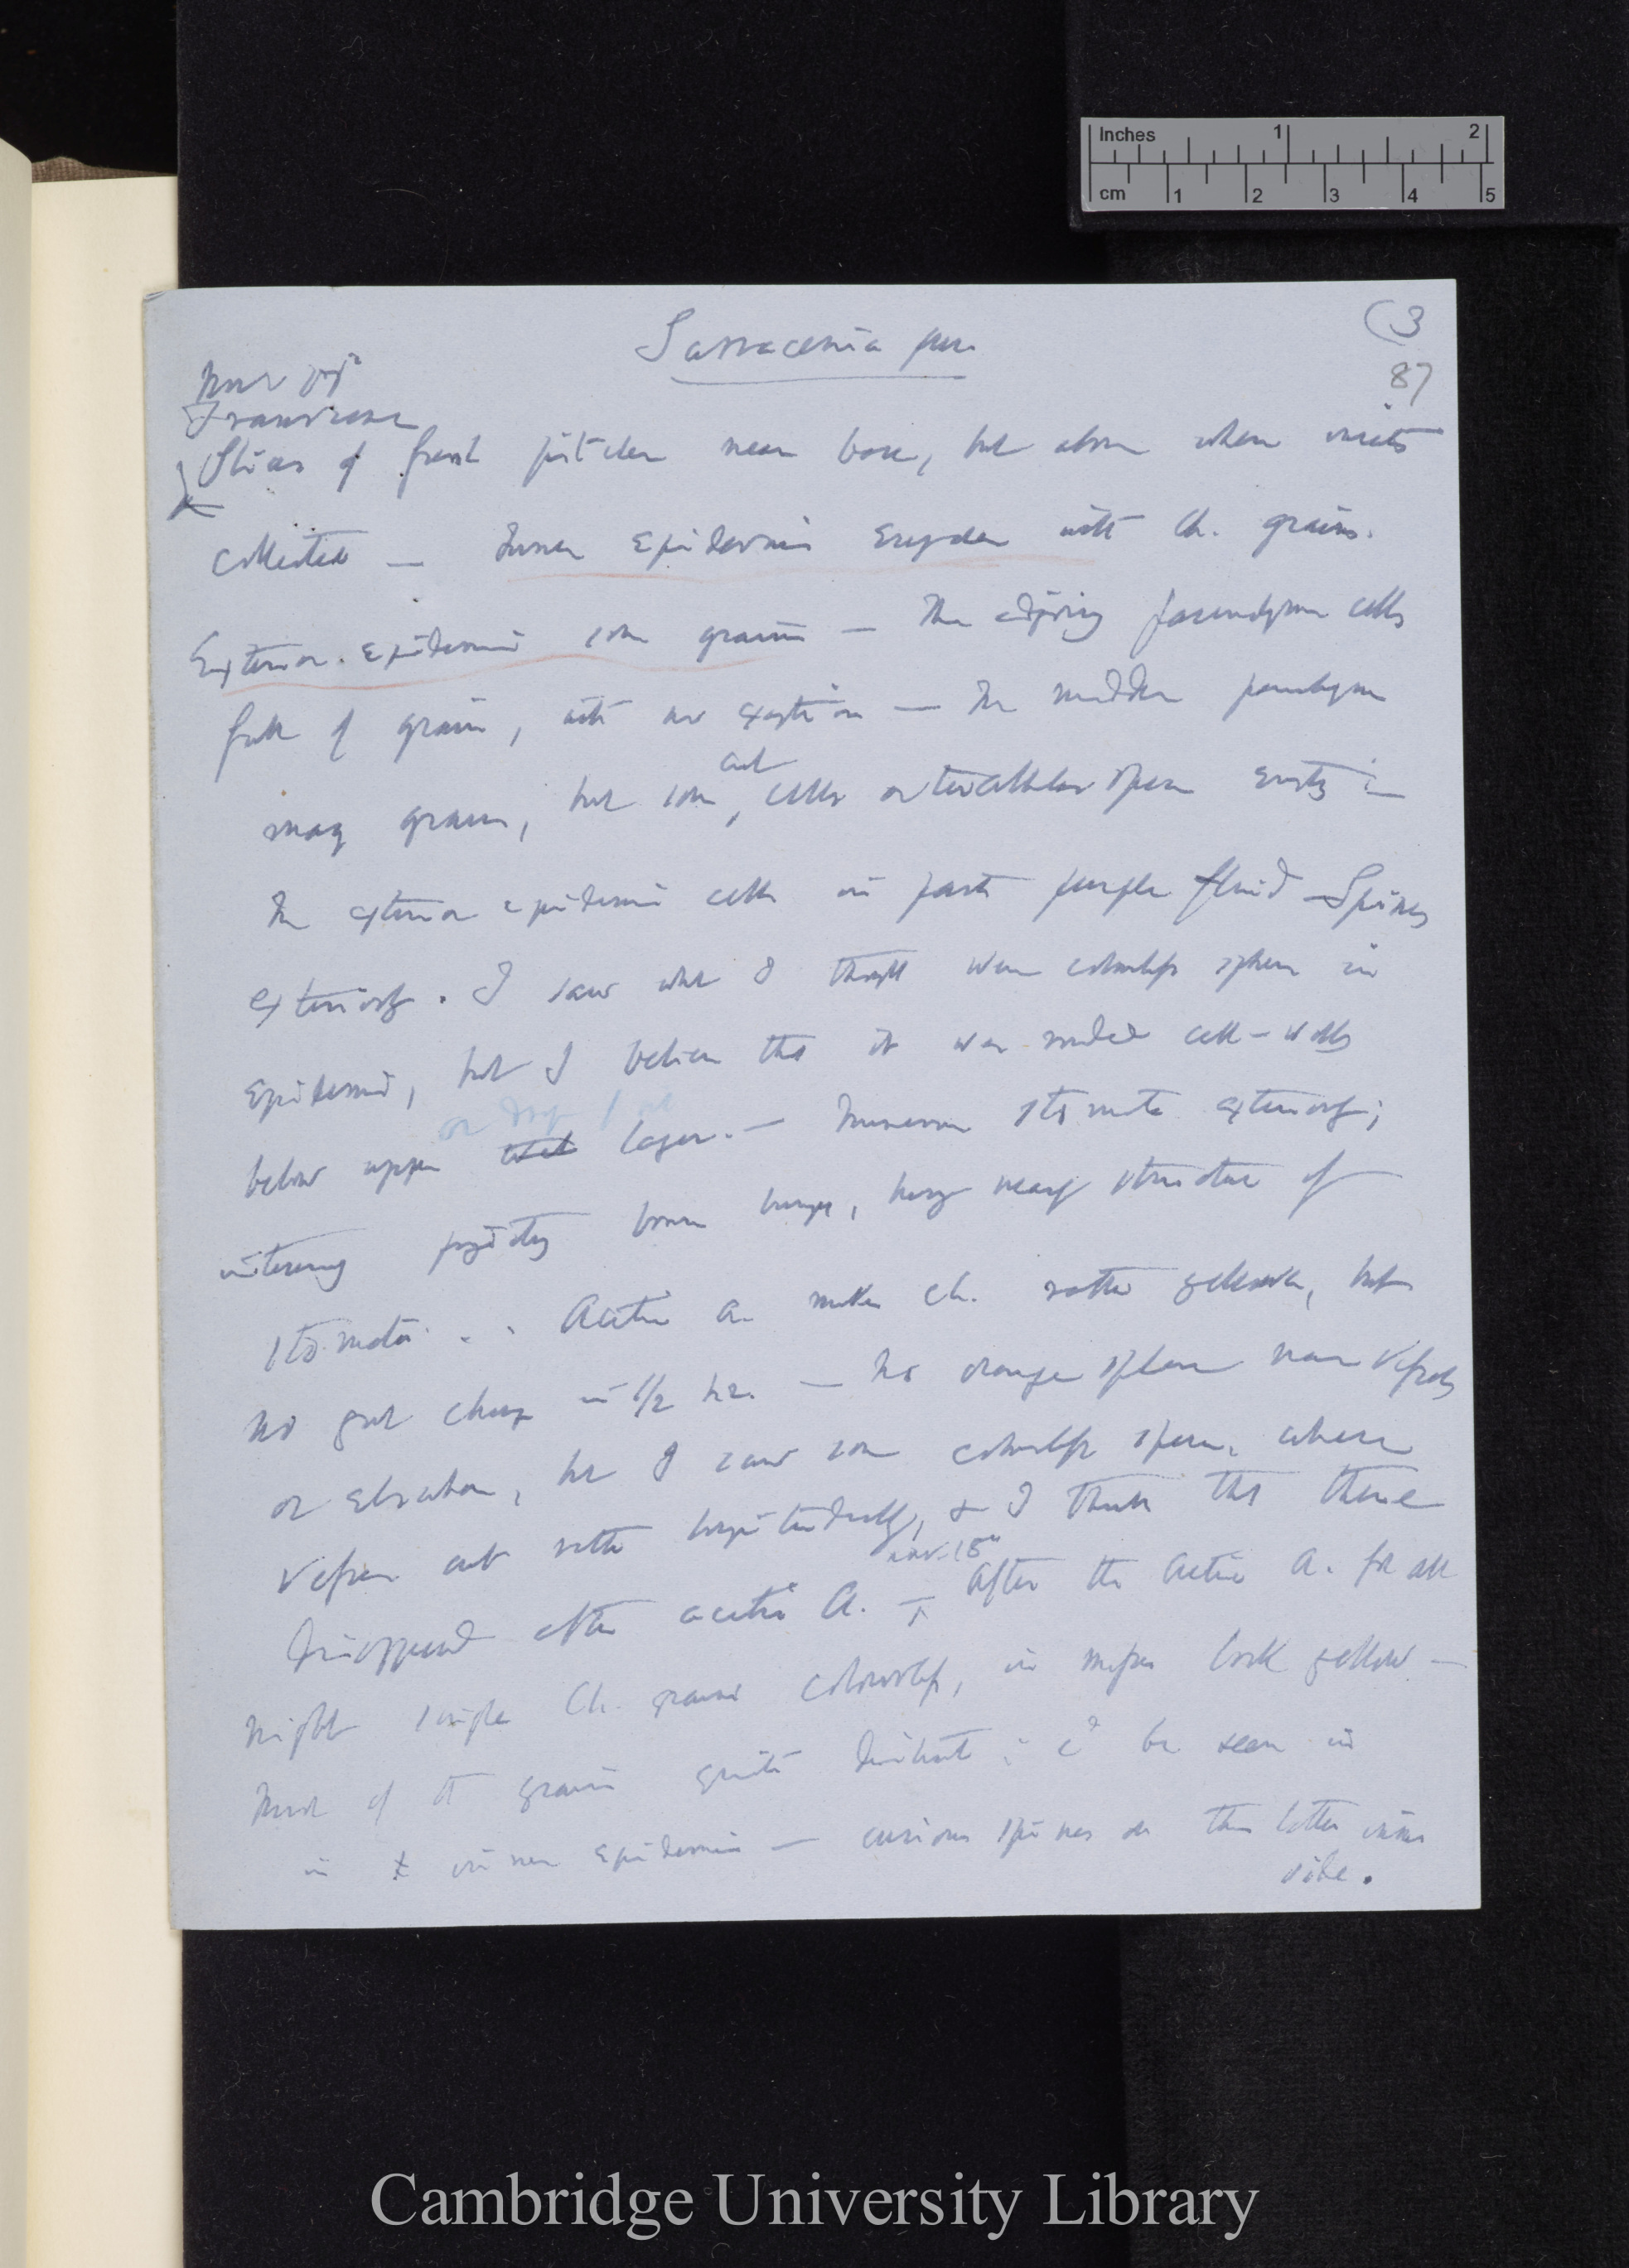 Inches 1 2
cm 1 2 3 4 5
Sarracenia pur.
(3
87
Nov 17
Transverse
Slices of fresh pitcher near base, but above where insects
collected — Inner Epidermis with Ch. grains.
Exterior epidermis some grains — The adjoining parenchyma cells
full of grains, with no exception — The middle parenchyma
many grains, but some cut cells or intercellular spaces empty —
The exterior epidermis cells in parts purple fluid — Spines
exteriorly. I saw what I thought were colourless spheres in
Epidermis, but I believe that it was rounded cell-walls
or drops of oil
below upper layer. — Numerous stomata exteriorly;
interiorly brown, nearly structure of
stomata. Acetic A. makes Ch. rather yellower, but
no great change in 1/2 hr. — No orange spheres near Vessels
or elsewhere, but I saw some colourless spheres, where
Vessels cut rather longitudinally, & I think that these
disappeared after acetic A. — Nov. 18th After the Acetic A. for all
night single Ch. grains colourless, in masses look yellow —
Most of the grains quite distinct; cd be seen in
in inner epidermis — curious spines on this latter inner
side.
Cambridge University Library